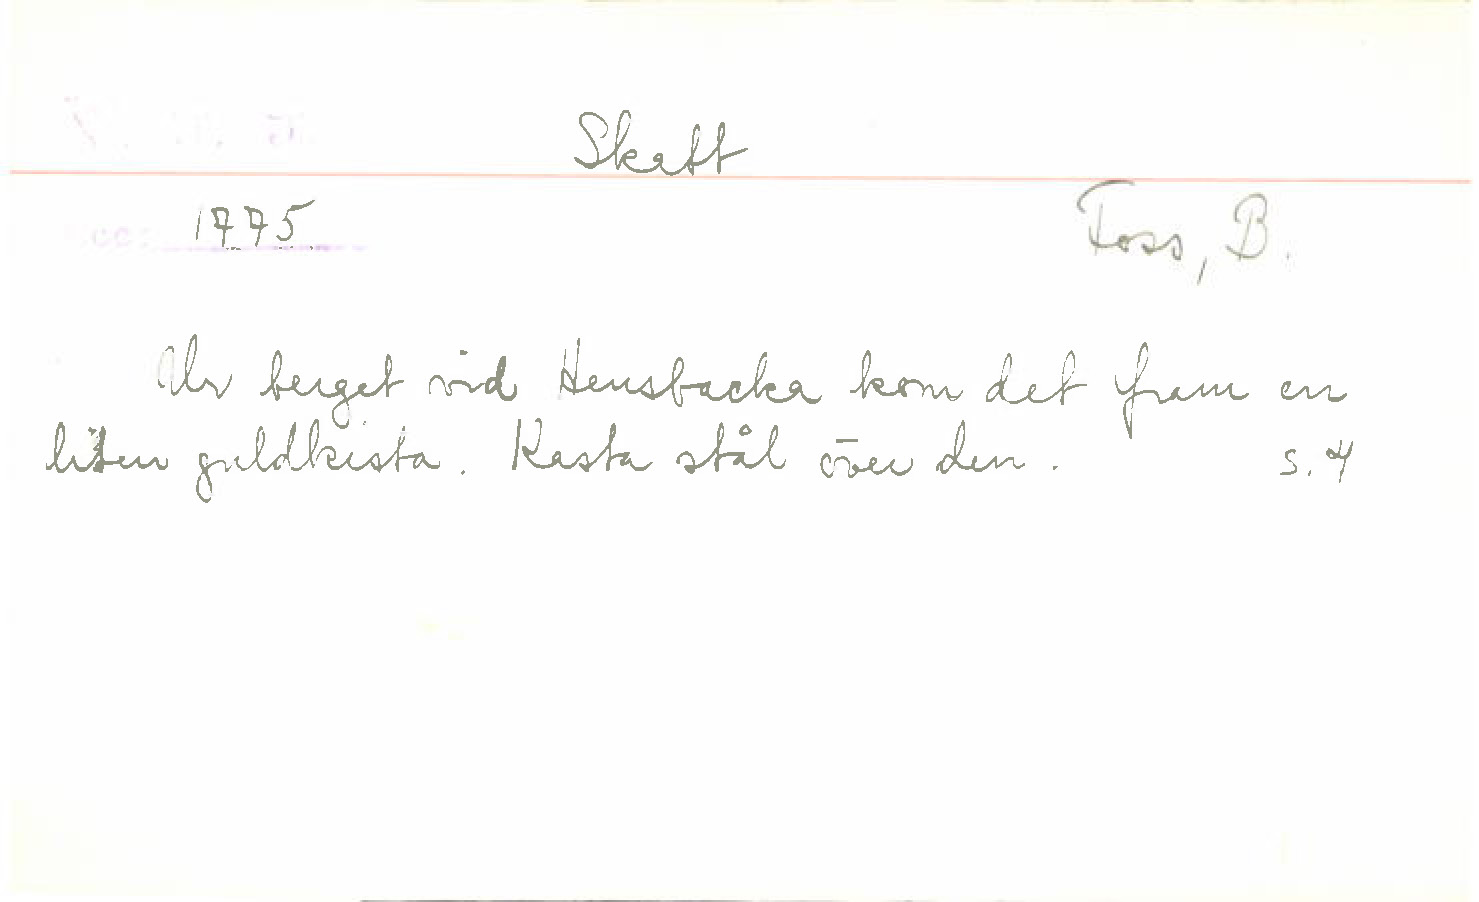 Skatt
1775
Foss, B.
Ur berget vid Hensbacka kom det fram en
liten guldkista. Kasta stål över den. s. 4